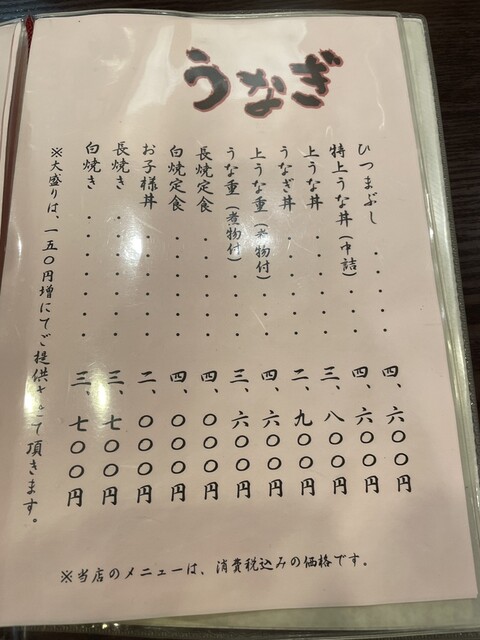 うなぎ
ひつまぶし・・・・四、六〇〇円
特上うな丼(中詰)・・四、六〇〇円
上うな丼・・・・・三、八〇〇円
うなぎ丼・・・・・二、九〇〇円
上うな重(煮物付)・・四、六〇〇円
うな重(煮物付)・・・三、六〇〇円
長焼定食・・・・・四、〇〇〇円
白焼定食・・・・・四、〇〇〇円
お子様丼・・・・・二、〇〇〇円
長焼き・・・・・三、七〇〇円
白焼き・・・・・三、七〇〇円
※大盛りは、一五〇円増にてご提供させて頂きます。
※当店のメニューは、消費税込みの価格です。